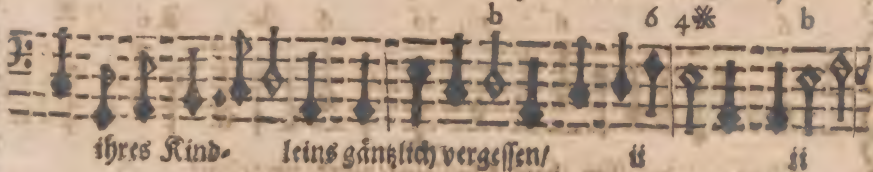 b 6 4※ b
ihres Kind- leins gäntzlich vergessen/ ij ij